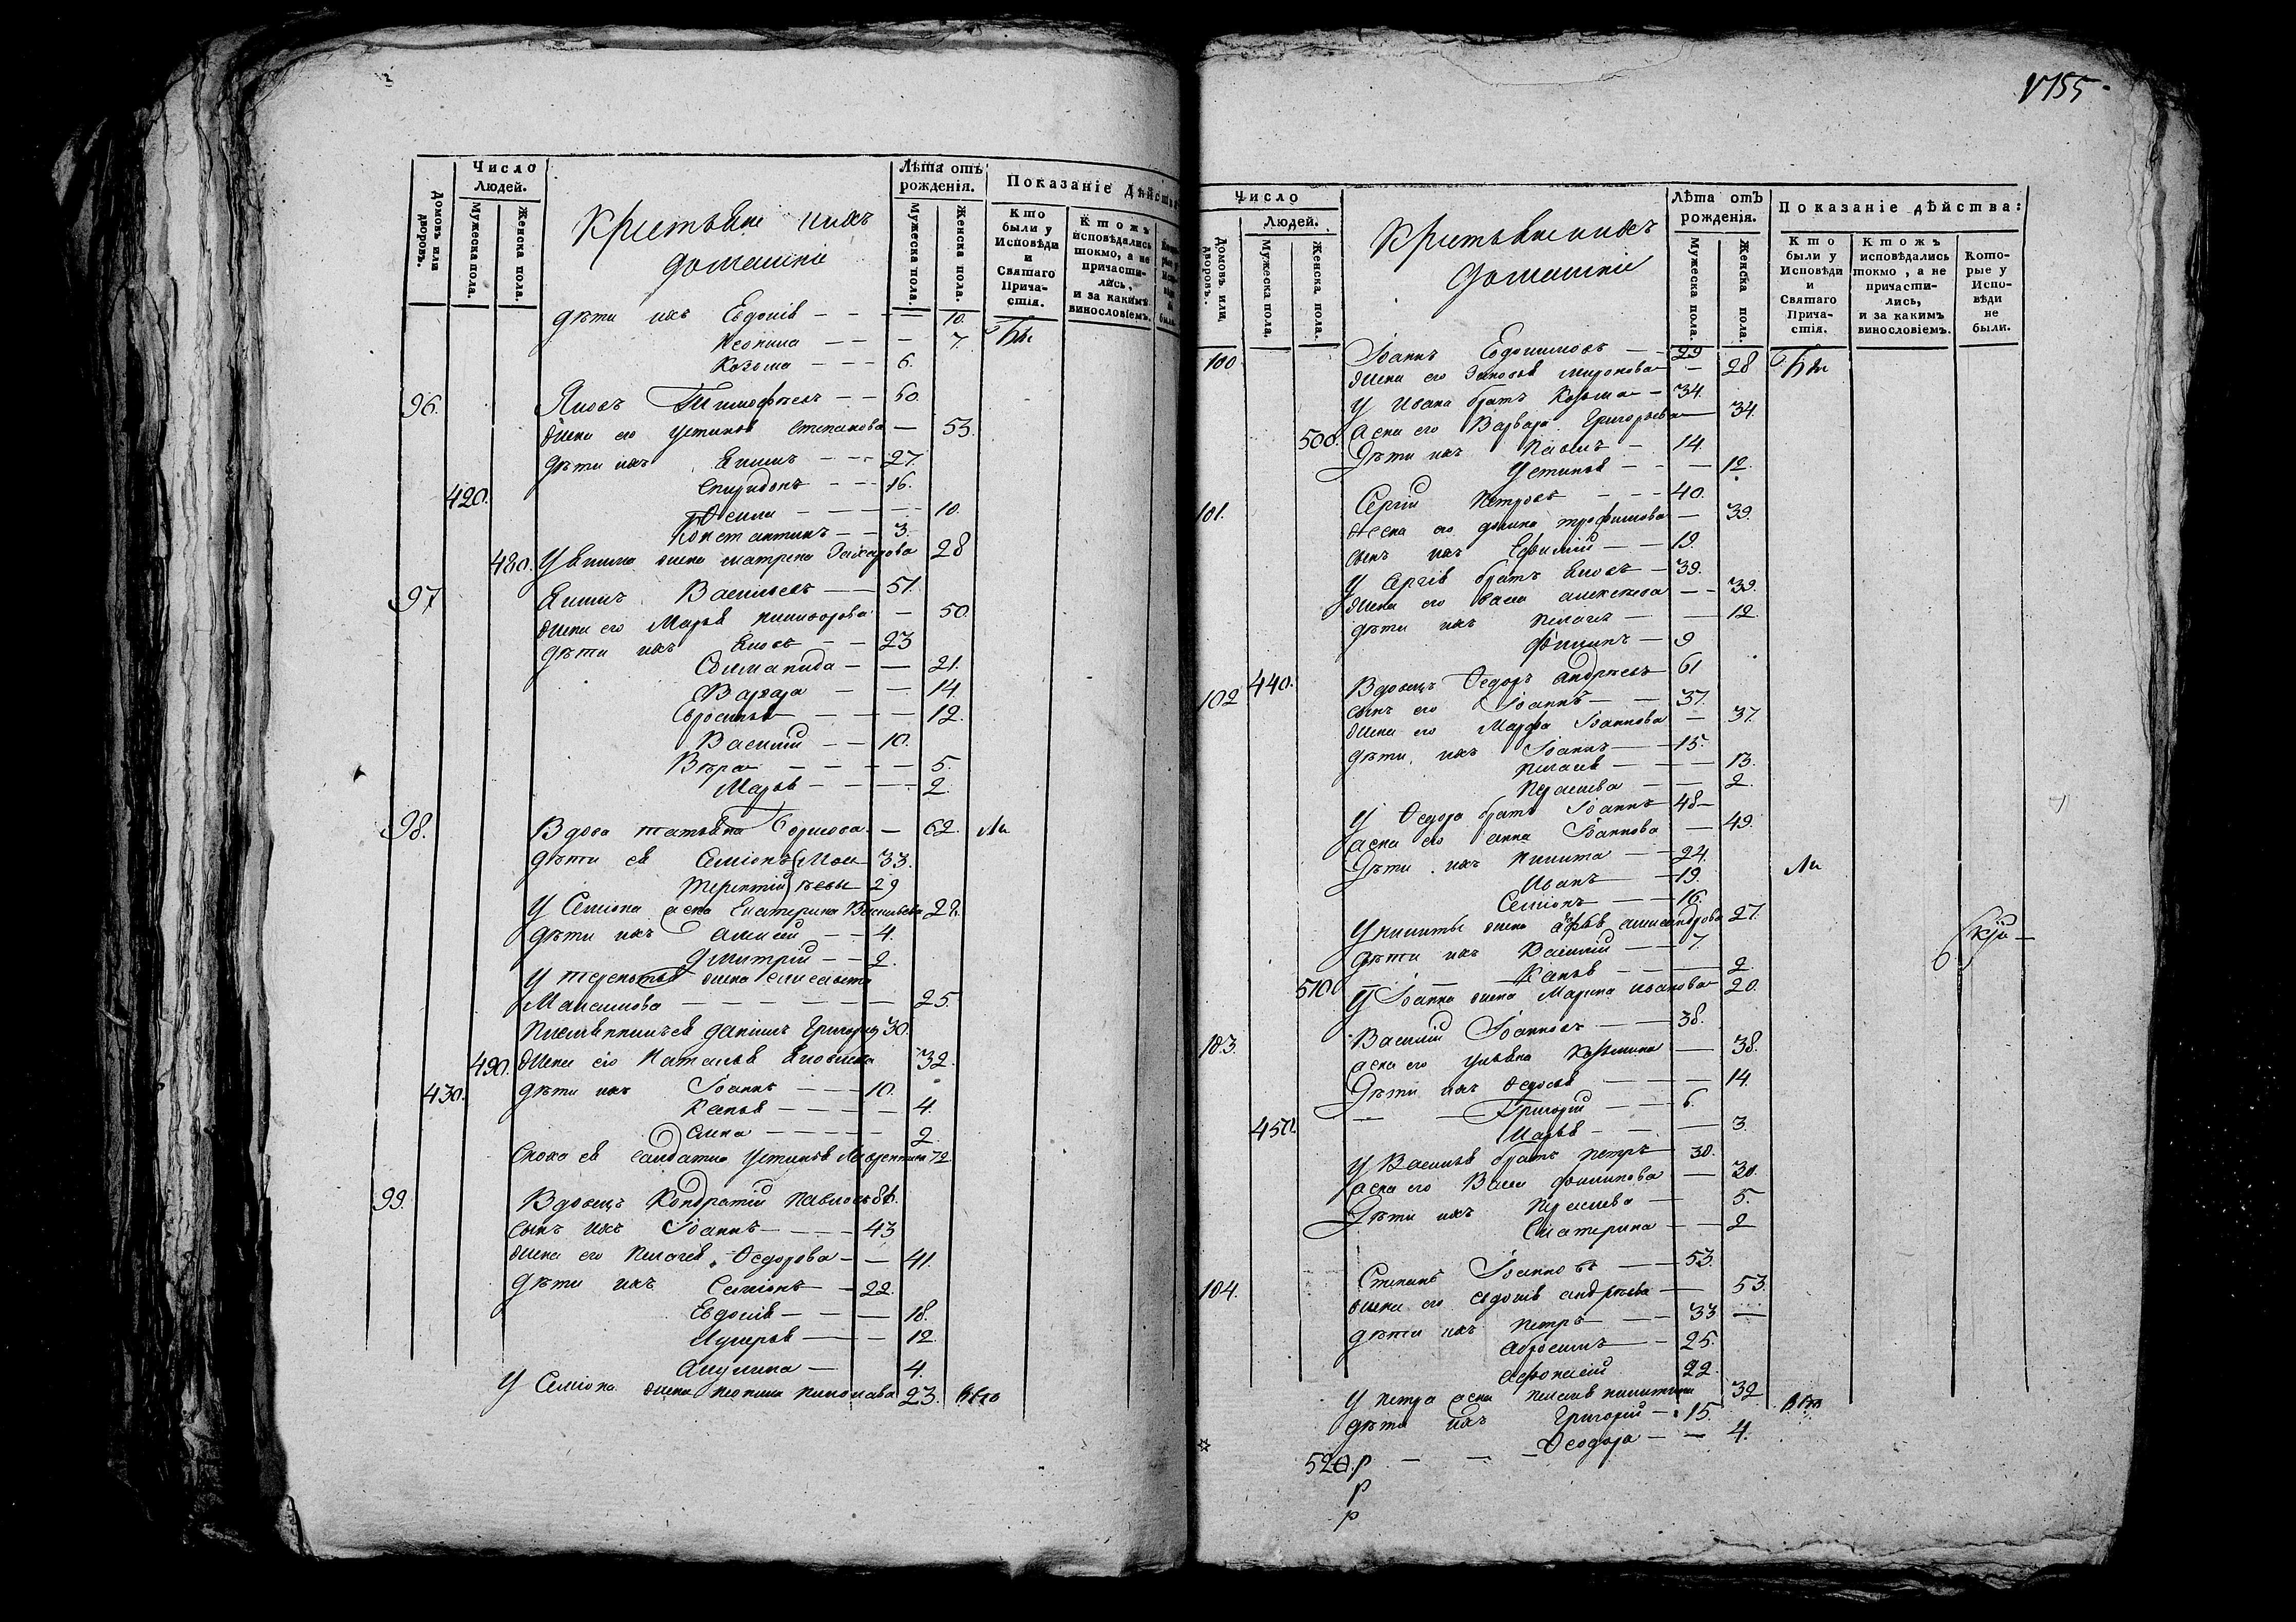 Домовъ или дворовъ.
Число Людей.
Мужеска пола.
Женска пола.
Крестьяне и ихъ
домашніи
Лѣта отъ рожденія.
Мужеска пола.
Женска пола.
Показаніе дѣйства
Кто были у Исповѣди и Святаго Прича-стія.
Кто жъ исповѣдались токмо, а не причасти-лись, и за какимъ винословіемъ.
дѣти ихъ Евдокія — — — 10.
Ксенина — — — 7. Бы
Козома — — — 6.
96. Яковъ Тимофѣевъ — — 60.
жена его Устинія Степанова — 53.
дѣти ихъ Якимъ — — 27.
420. Спиридонъ — — 16.
Фекла — — — 10.
Константинъ — — 3.
480. У Якима жена Матрена Захарова 28
97 Якимъ Васильевъ — — 51.
жена его Марья Никифорова — 50.
дѣти ихъ Яковъ — — 23
Соломанида — — 21.
Варвара — — 14.
Евросинья — — — 12.
Василий — — 10.
Вѣра — — — — 5.
Марья — — — — 2.
98. Вдова Татьяна Борисова — 62. ли
дѣти ея Семіонъ Мои 33.
Терентій сѣевы 29
У Семіона жена Екатерина Васильева 28.
дѣти ихъ Алексей — — 4.
Дмитрій — — 2.
У Терентья жена Елисавета
Максимова — — — — — — 25.
Данилъ Григорьевъ 30.
490. жена его Наталья Яковлева 32.
430. дѣти ихъ Іоаннъ — — — 10.
Ксенья — — — — — 4.
Елена — — — — — 2
Сноха ея салдатка Устинья Лаврентьева 72.
99. Вдовецъ Кондратій Павловъ 86.
сынъ ихъ Іоаннъ — — — 43
жена его Пелагея Федорова — — 41.
дѣти ихъ Семіонъ — — 22.
Евдокія — — — 18.
Лукерья — — — 12
Акулина — 4.
У Семіона жена Ксенья Николаева 23. все
755
Число
Домовъ или дворовъ.
Людей.
Мужеска пола.
Женска пола.
Крестьяне и ихъ
Домашніи
Лѣта отъ рожденія.
Мужеска пола.
Женска пола.
Показаніе дѣйства:
Кто были у Исповѣди и Святаго Прича-стія.
Кто жъ исповѣдались токмо, а не причасти-лись, и за какимъ винословіемъ.
Кото-рые у Испо-вѣди не были.
100 Іоаннъ Евдокимовъ — — 29
жена его Зиновья Миронова — 28 Бы
У Ивана братъ Козьма — 34.
500. жена его Варвара Григорьева — 34.
Дѣти ихъ Павелъ — 14.
Устинья — — — 12.
101. Сергій Петровъ — — — 40.
жена его Домна Трофимова — 39.
сынъ ихъ Ефимій — — 19.
У Сергія братъ Яковъ — 39.
жена его Васса Алексеева — — 39.
дѣти ихъ Пелагея — — 12
Филипъ — 9
102 440. Вдовецъ Федоръ Андреевъ 61
сынъ его Іоаннъ — — 37.
жена его Марфа Іоаннова — 37.
дѣти ихъ Іоаннъ — — 15.
Пелагея — — — — 13.
Парасковья — — 2.
У Федора братъ Іоаннъ 48—
жена его Анна Іоаннова — 49.
Дѣти ихъ Никита — — 24. ли
Иванъ — 19.
Семіонъ — — 16.
У Никиты жена Дарья Александрова 27.
дѣти ихъ Василий — — 7.
Ксенья — — — 2.
510. У Іоанна жена Марина Иванова 20.
103. Василий Іоанновъ — — 38.
жена его Ульяна Козьмина — 38.
Дѣти ихъ Федосья — — — 14.
— — Григорій — — 6.
450. Марья — — — 3.
У Василья братъ Петръ 30.
жена его Васса Филипова — 30.
Дѣти ихъ — 5.
Екатерина — — 2
104. Степанъ Іоанновъ — — 53.
жена его Евдокія Андреева — 53.
дѣти ихъ Петръ — — — 33 —
Абросимъ — — 25.
Афонасій 22.
У Петра жена Пелагея Никитина 32
дѣти ихъ Григорій — 15. все
520. — — — Феодора — — 4.